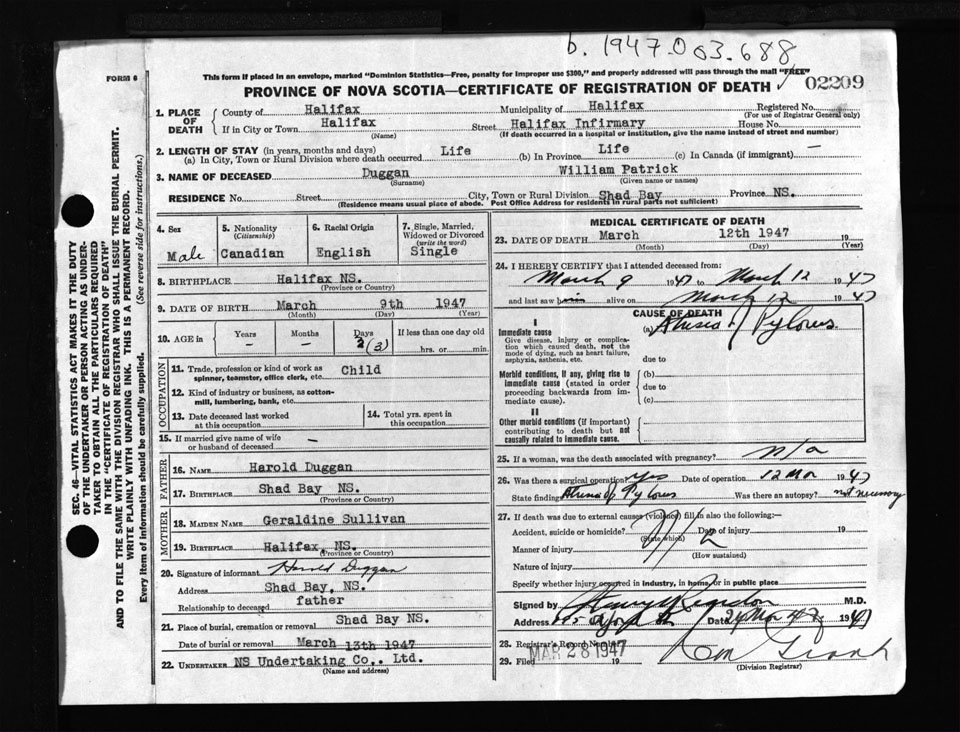 b. 1947.003.688
FORM 6
This form if placed in an envelope, marked "Dominion Statistics—Free, penalty for improper use $300," and properly addressed will pass through the mail "FREE"
PROVINCE OF NOVA SCOTIA—CERTIFICATE OF REGISTRATION OF DEATH 02209
1. PLACE OF DEATH
County of Halifax Municipality of Halifax Registered No.
(For use of Registrar General only)
If in City or Town Halifax Street Halifax Infirmary House No.
(Name) (If death occurred in a hospital or institution, give the name instead of street and number)
2. LENGTH OF STAY (in years, months and days)
(a) In City, Town or Rural Division where death occurred Life (b) In Province Life (c) In Canada (if immigrant) —
3. NAME OF DECEASED Duggan William Patrick
(Surname) (Given name or names)
RESIDENCE No. Street City, Town or Rural Division Shad Bay Province NS.
(Residence means usual place of abode. Post Office Address for residents in rural parts not sufficient)
4. Sex Male
5. Nationality (Citizenship) Canadian
6. Racial Origin English
7. Single, Married, Widowed or Divorced (write the word) Single
8. BIRTHPLACE Halifax NS.
(Province or Country)
9. DATE OF BIRTH March 9th 1947
(Month) (Day) (Year)
10. AGE in Years — Months — Days (3) If less than one day old hrs. or min.
OCCUPATION
11. Trade, profession or kind of work as spinner, teamster, office clerk, etc. Child
12. Kind of industry or business, as cotton-mill, lumbering, bank, etc.
13. Date deceased last worked at this occupation
14. Total yrs. spent in this occupation
15. If married give name of wife or husband of deceased —
FATHER
16. NAME Harold Duggan
17. BIRTHPLACE Shad Bay NS.
(Province or Country)
MOTHER
18. MAIDEN NAME Geraldine Sullivan
19. BIRTHPLACE Halifax, NS.
(Province or Country)
20. Signature of informant Harold Duggan
Address Shad Bay, NS.
Relationship to deceased father
21. Place of burial, cremation or removal Shad Bay NS.
Date of burial or removal March 13th 1947
22. UNDERTAKER NS Undertaking Co., Ltd.
(Name and address)
MEDICAL CERTIFICATE OF DEATH
23. DATE OF DEATH March 12th 1947 19
(Month) (Day) (Year)
24. I HEREBY CERTIFY that I attended deceased from:
March 9 1947 to March 12 1947
and last saw him alive on March 12 1947
CAUSE OF DEATH
I
Immediate cause (a) Atresia of Pylorus
Give disease, injury or complication which caused death, not the mode of dying, such as heart failure, asphyxia, asthenia, etc.
due to
Morbid conditions, if any, giving rise to immediate cause (stated in order proceeding backwards from immediate cause).
(b)
due to
(c)
II
Other morbid conditions (if important) contributing to death but not causally related to immediate cause.
25. If a woman, was the death associated with pregnancy? n/a
26. Was there surgical operation? Yes Date of operation 12 Mar 1947
State findings Atresia of Pylorus Was there an autopsy? not necessary
27. If death was due to external causes (violence) fill in also the following:—
Accident, suicide or homicide? Date of injury 19
(State which)
Manner of injury
(How sustained)
Nature of injury
Specify whether injury occurred in industry, in home, or in public place
Signed by M.D.
Address Date 24 Mar 47 1947
28. Registrar's Record Number
29. Filed MAR 28 1947 19
(Division Registrar)
SEC. 46—VITAL STATISTICS ACT MAKES IT THE DUTY
OF THE UNDERTAKER OR PERSON ACTING AS UNDER-
TAKER TO OBTAIN ALL THE PARTICULARS REQUIRED
IN THE "CERTIFICATE OF REGISTRATION OF DEATH"
AND TO FILE THE SAME WITH THE DIVISION REGISTRAR WHO SHALL ISSUE THE BURIAL PERMIT.
WRITE PLAINLY WITH UNFADING INK. THIS IS A PERMANENT RECORD.
Every item of information should be carefully supplied. (See reverse side for instructions.)